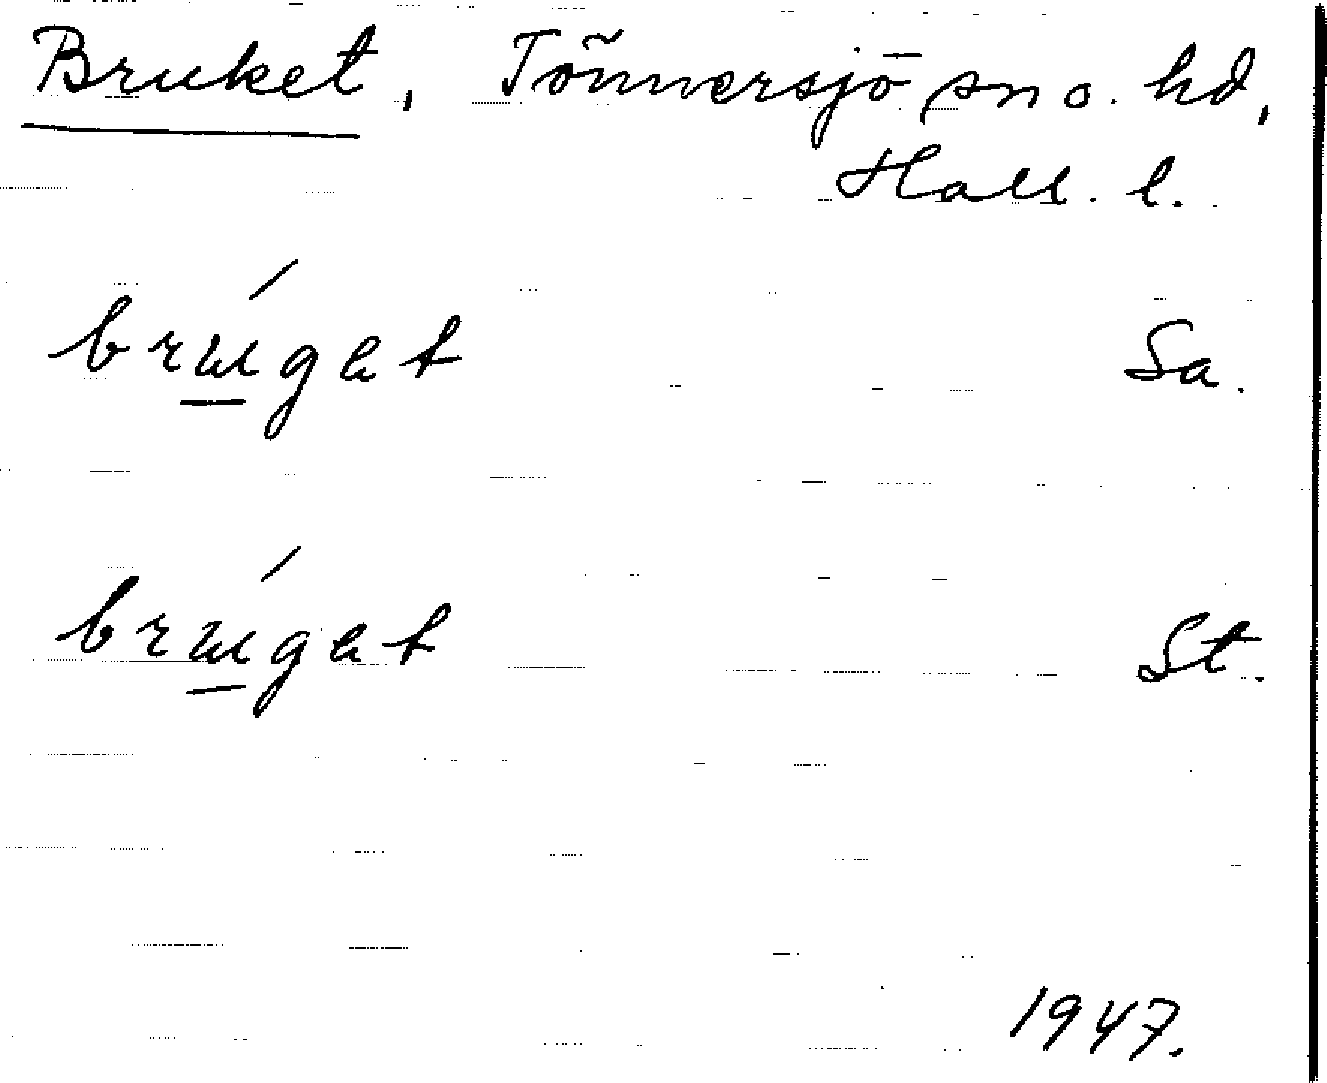 Bruket, Tönnersjö sn o. hd,
Hall. l.
brúgat Sa.
brúgat St.
1947.